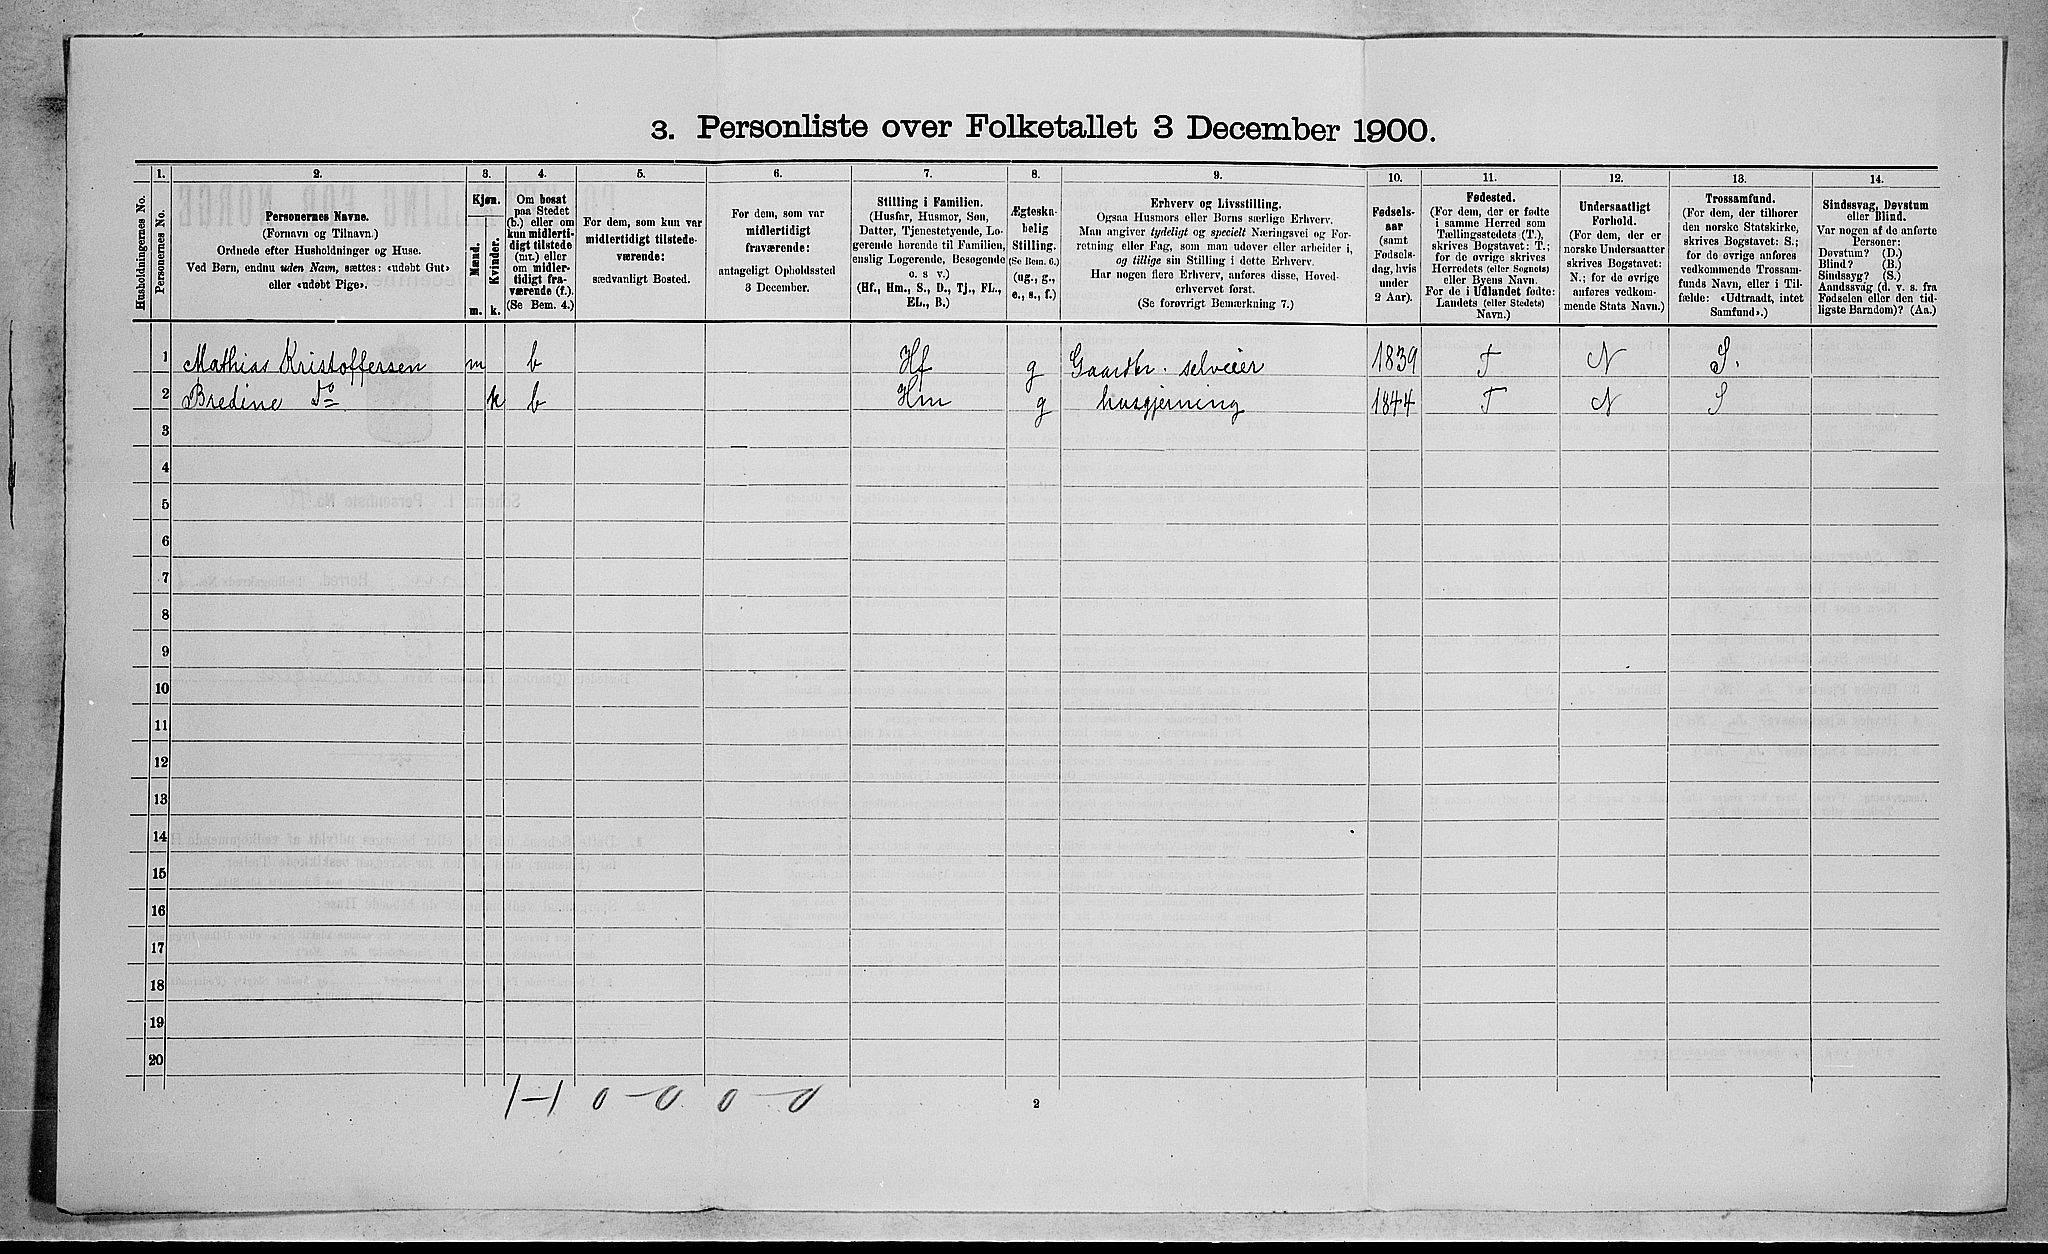 3. Personliste over Folketallet 3 December 1900.
1. 2. 3. 4. 5. 6. 7. 8. 9. 10. 11. 12. 13. 14.
Husholdningernes No.
Personernes No.
Personernes Navne.
(Fornavn og Tilnavn.)
Ordnede efter Husholdninger og Huse.
Ved Børn, endnu uden Navn, sættes: «udøbt Gut»
eller «udøbt Pige».
Kjøn.
Mænd.
Kvinder.
m. k.
Om bosat
paa Stedet
(b.) eller om
kun midlerti-
digt tilstede
(mt.) eller
om midler-
tidigt fra-
værende (f.).
(Se Bem. 4.)
For dem, som kun var
midlertidigt tilstede-
værende:
sædvanligt Bosted.
For dem, som var
midlertidigt
fraværende:
antageligt Opholdssted
3 December.
Stilling i Familien.
(Husfar, Husmor, Søn,
Datter, Tjenestetyende, Lo-
gerende hørende til Familien,
enslig Logerende, Besøgende
o. s v.)
(Hf., Hm., S., D., Tj., FL.,
EL., B.)
Ægteska-
belig
Stilling.
(Se Bem. 6.)
(ug., g.,
e., s., f.)
Erhverv og Livsstilling.
Ogsaa Husmors eller Børns særlige Erhverv.
Man angiver tydeligt og specielt Næringsvei og For-
retning eller Fag, som man udøver eller arbeider i,
og tillige sin Stilling i dette Erhverv.
Har nogen flere Erhverv, anføres disse, Hoved-
erhvervet først.
(Se forøvrigt Bemærkning 7.)
Fødsels-
aar
(samt
Fødsels-
dag, hvis
under
2 Aar).
Fødested.
(For dem, der er fødte
i samme Herred som
Tællingsstedets (T.),
skrives Bogstavet: T.;
for de øvrige skrives
Herredets (eller Sognets)
eller Byens Navn.
For de i Udlandet fødte:
Landets (eller Stedets)
Navn.)
Undersaatligt
Forhold.
(For dem, der er
norske Undersaatter
skrives Bogstavet:
N.; for de øvrige
anføres vedkom-
mende Stats Navn.)
Trossamfund.
(For dem, der tilhører
den norske Statskirke,
skrives Bogstavet: S.;
for de øvrige anføres
vedkommende Trossam-
funds Navn, eller i Til-
fælde: «Udtraadt, intet
Samfund».)
Sindssvag, Døvstum
eller Blind.
Var nogen af de anførte
Personer:
Døvstum? (D.)
Blind? (B.)
Sindssyg? (S.)
Aandssvag (d. v. s. fra
Fødselen eller den tid-
ligste Barndom)? (Aa.)
1 Mathias Kristoffersen m b Hf g Gaardbr. selveier 1839 T N S.
2 Bredine Do k b Hm g husgjerning 1844 T N S
3
4
5
6
7
8
9
10
11
12
13
14
15
16
17
18
19
20
1–1 0–0 0–0
2